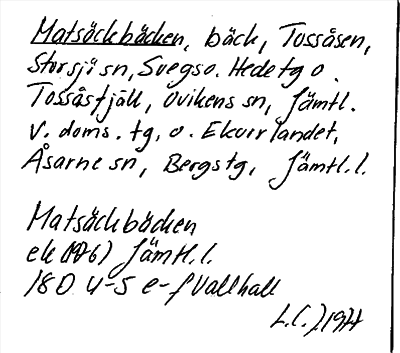 Matsäckbäcken, bäck, Tossåsen,
Storsjö sn, Svegs o. Hede tg o.
Tossåsfjäll, Ovikens sn, Jämtl.
v. doms. tg, o. Ekorrlandet,
Åsarne sn, Bergs tg, Jämtl. l.
Matsäckbäcken
ek Jämtl. l.
18D 4-5 e-f Vallhall
L.C. 1974